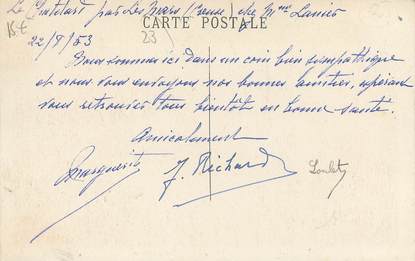 par Les Mars (Creuse) chez Mme
CARTE POSTALE
15 €
22/8/53
23)
Nous sommes ici dans un coin bien sympathique
et nous vous envoyons nos bonnes amitiés, espérant
vous retrouver tous bientôt en bonne santé.
Amicalement
Marguerite
J. Richard